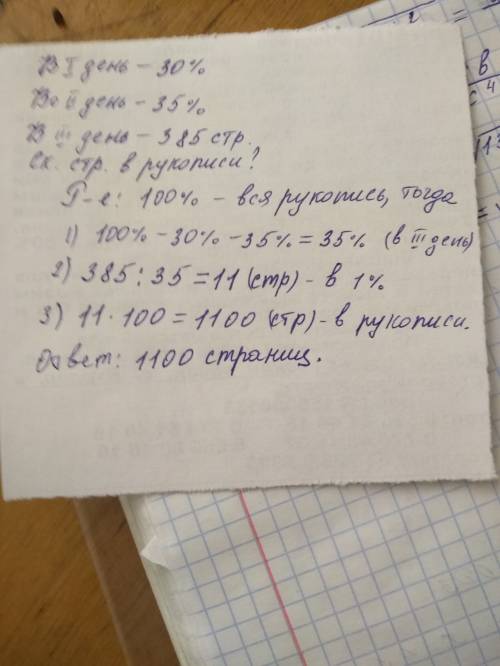 В I день – 30%
Во II день – 35%
В III день – 385 стр.
Ск. стр. в рукописи?
Р-е: 100% – вся рукопись, тогда
1) 100% – 30% – 35% = 35% (в III день)
2) 385 : 35 = 11 (стр) – в 1%
3) 11 · 100 = 1100 (стр) – в рукописи.
Ответ: 1100 страниц.